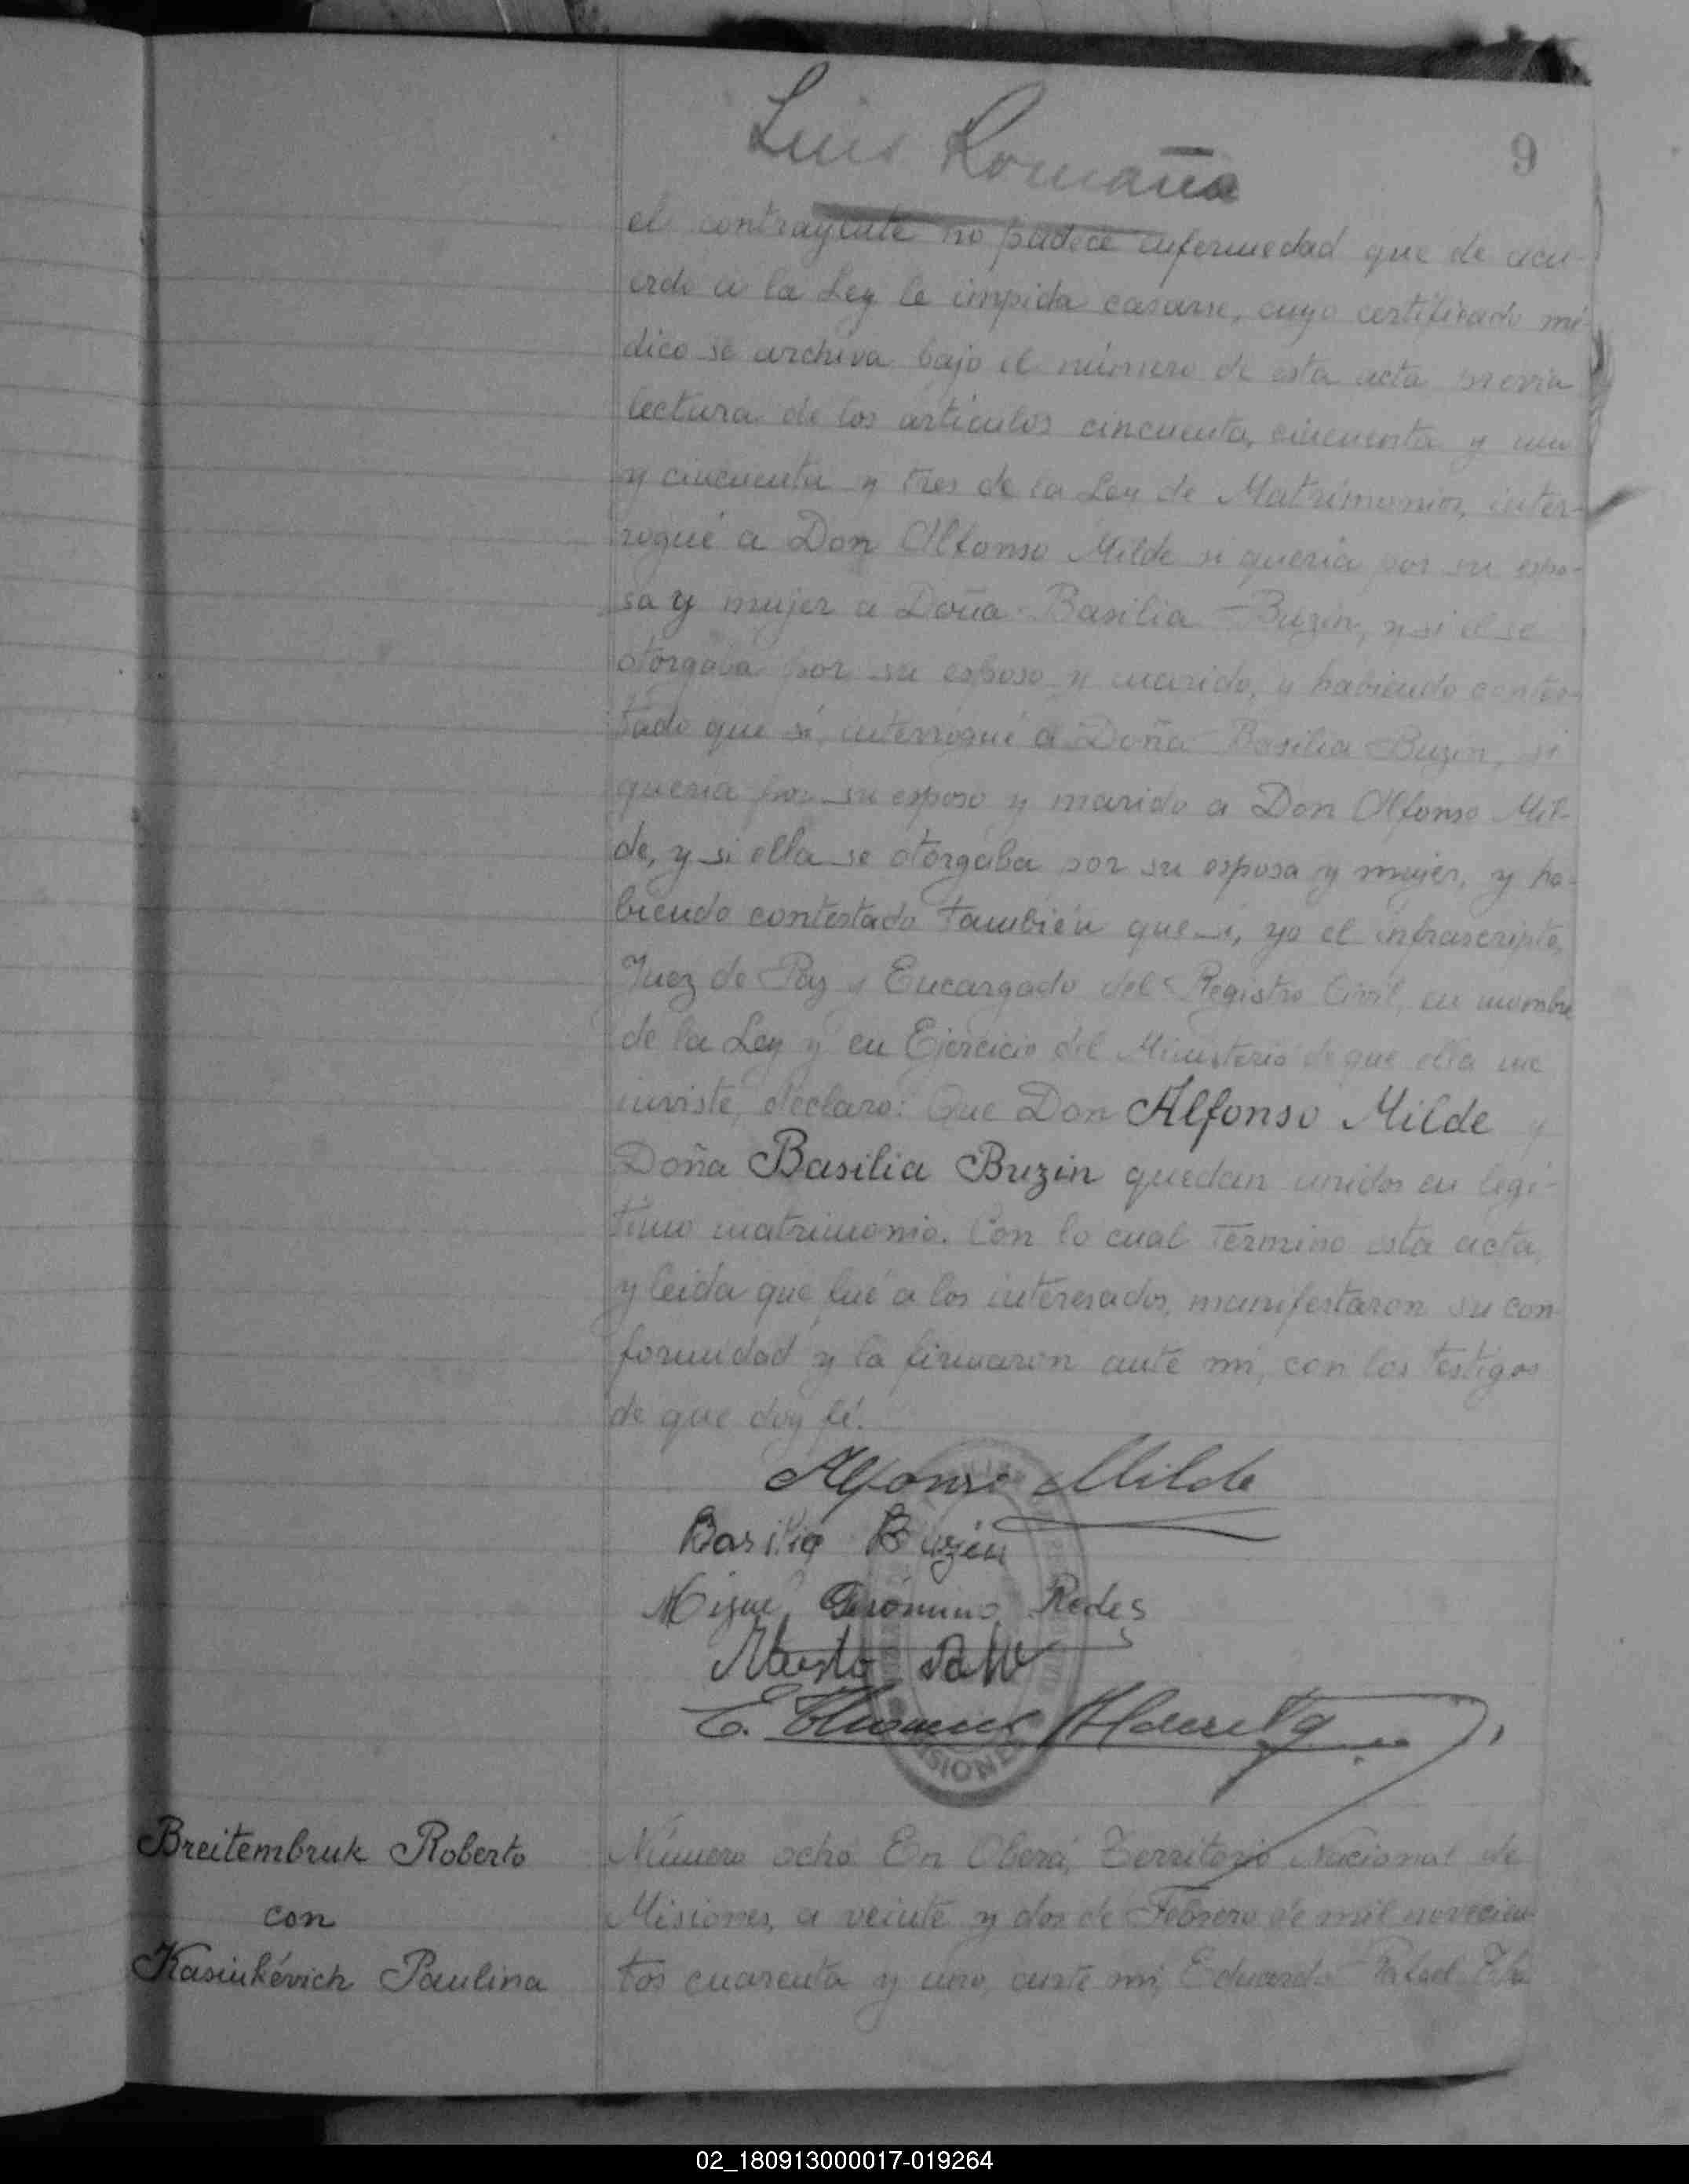 Luis Romaña
9
el contrayente no padece enfermedad que de acu-
erdo a la Ley le impida casarse, cuyo certificado mé-
dico se archiva bajo el número de esta acta previa
lectura de los artículos cincuenta, cincuenta y uno
y cincuenta y tres de la Ley de Matrimonios, inter-
rogué a Don Alfonso Milde si quería por su espo-
sa y mujer a Doña Basilia Buzin, y si el se
otorgaba por su esposo y marido, y habiendo contes-
tado que sí, interrogué a Doña Basilia Buzin, si
quería por su esposo y marido a Don Alfonso Mil-
de, y si ella se otorgaba por su esposa y mujer, y ha-
biendo contestado también que si, yo el infrascripto,
Juez de Paz y Encargado del Registro Civil, en nombre
de la Ley y en Ejercicio del Ministerio de que ella me
inviste, declaro: Que Don Alfonso Milde y
Doña Basilia Buzin quedan unidos en legí-
timo matrimonio. Con lo cual terminó esta acta,
y leida que fué a los interesados, manifestaron su con-
formidad y la firmaron ante mi, con los testigos
de que doy fé.
Alfonso Milde
Basilia Buzin
Miguel Gerónimo Rodes
E.
MISIONES
Breitembruk Roberto
con
Kasiukévich Paulina
Número ocho En Oberá, Territorio Nacional de
Misiones, a veinte y dos de Febrero de mil novecien-
tos cuarenta y uno, ante mi, Eduardo Rafael
02_180913000017-019264